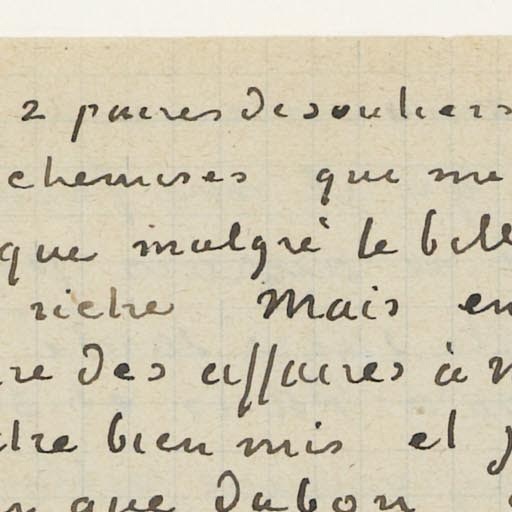 2 paires de souliers
chemises que me
que malgré le bill
riche Mais en
re des affaires à
tre bien mis et
que du bon